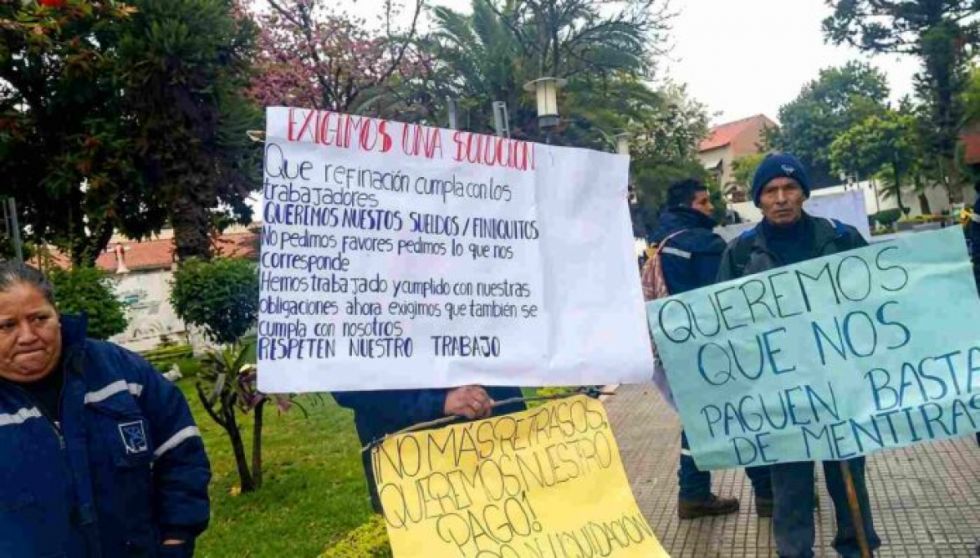 EXIGIMOS UNA SOLUCION
Que refinación cumpla con los
trabajadores
QUEREMOS NUESTOS SUELDOS / FINIQUITOS
No pedimos favores pedimos lo que nos
corresponde
Hemos trabajado y cumplido con nuestras
obligaciones ahora exigimos que también se
cumpla con nosotros
RESPETEN NUESTRO TRABAJO
QUEREMOS
QUE NOS
PAGUEN BASTA
DE MENTIRAS
¡NO MAS RETRASOS
QUEREMOS NUESTRO
PAGO!
DE LIQUIDACION